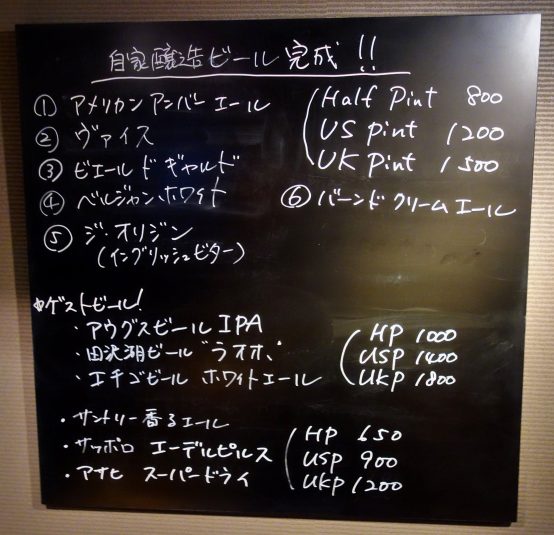 自家醸造ビール完成!!
① アメリカンアンバーエール
Half Pint 800
② ヴァイス
US pint 1200
③ ビエールドギャルド
UK Pint 1500
④ ベルジャンホワイト
⑥ バーンドクリームエール
⑤ ジ・オリジン
(イングリッシュビター)
ゲストビール!
・アウグスビール IPA
HP 1000
・田沢湖ビール "ラオホ"
USP 1400
・エチゴビール ホワイトエール
UKP 1800
・サントリー香るエール
HP 650
・サッポロ エーデルピルス
USP 900
・アサヒ スーパードライ
UKP 1200